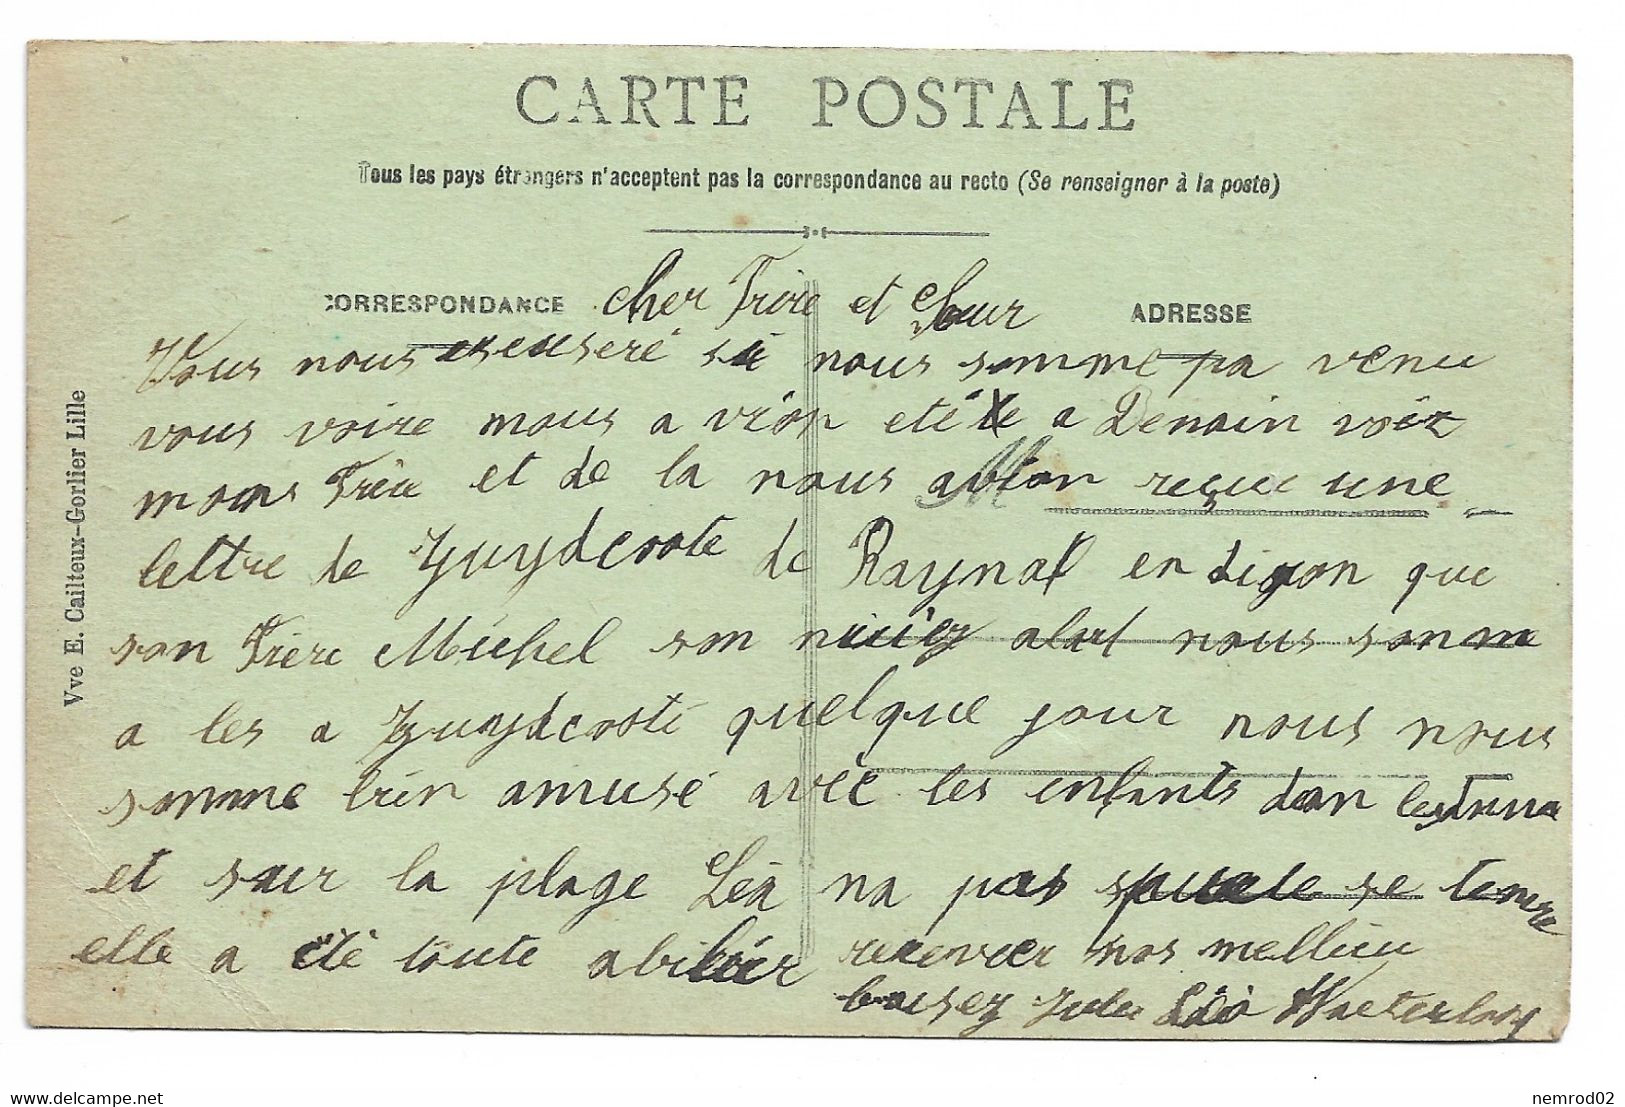 CARTE POSTALE
Tous les pays étrangers n'acceptent pas la correspondance au recto (Se renseigner à la poste)
CORRESPONDANCE cher Frère et Sœur ADRESSE
Vous nous escuseré si nous somme pa venu
vous voire nous a vion eté a Denain voir
mons Frère et de la nous avion reçue une
lettre de Zuydcoote de Raynal en digon que
son Frère Michel son alort nous somme
a les a Zuydcoote quelque jour nous nous
somme bien amusé avec les enfants dan les dune
et sur la plage Léa na pas se tenire
elle a été toute recevoer nos mellieu
baisez Jules Léa Waeterloos
Vve E. Cailteux-Gorlier Lille
nemrod02